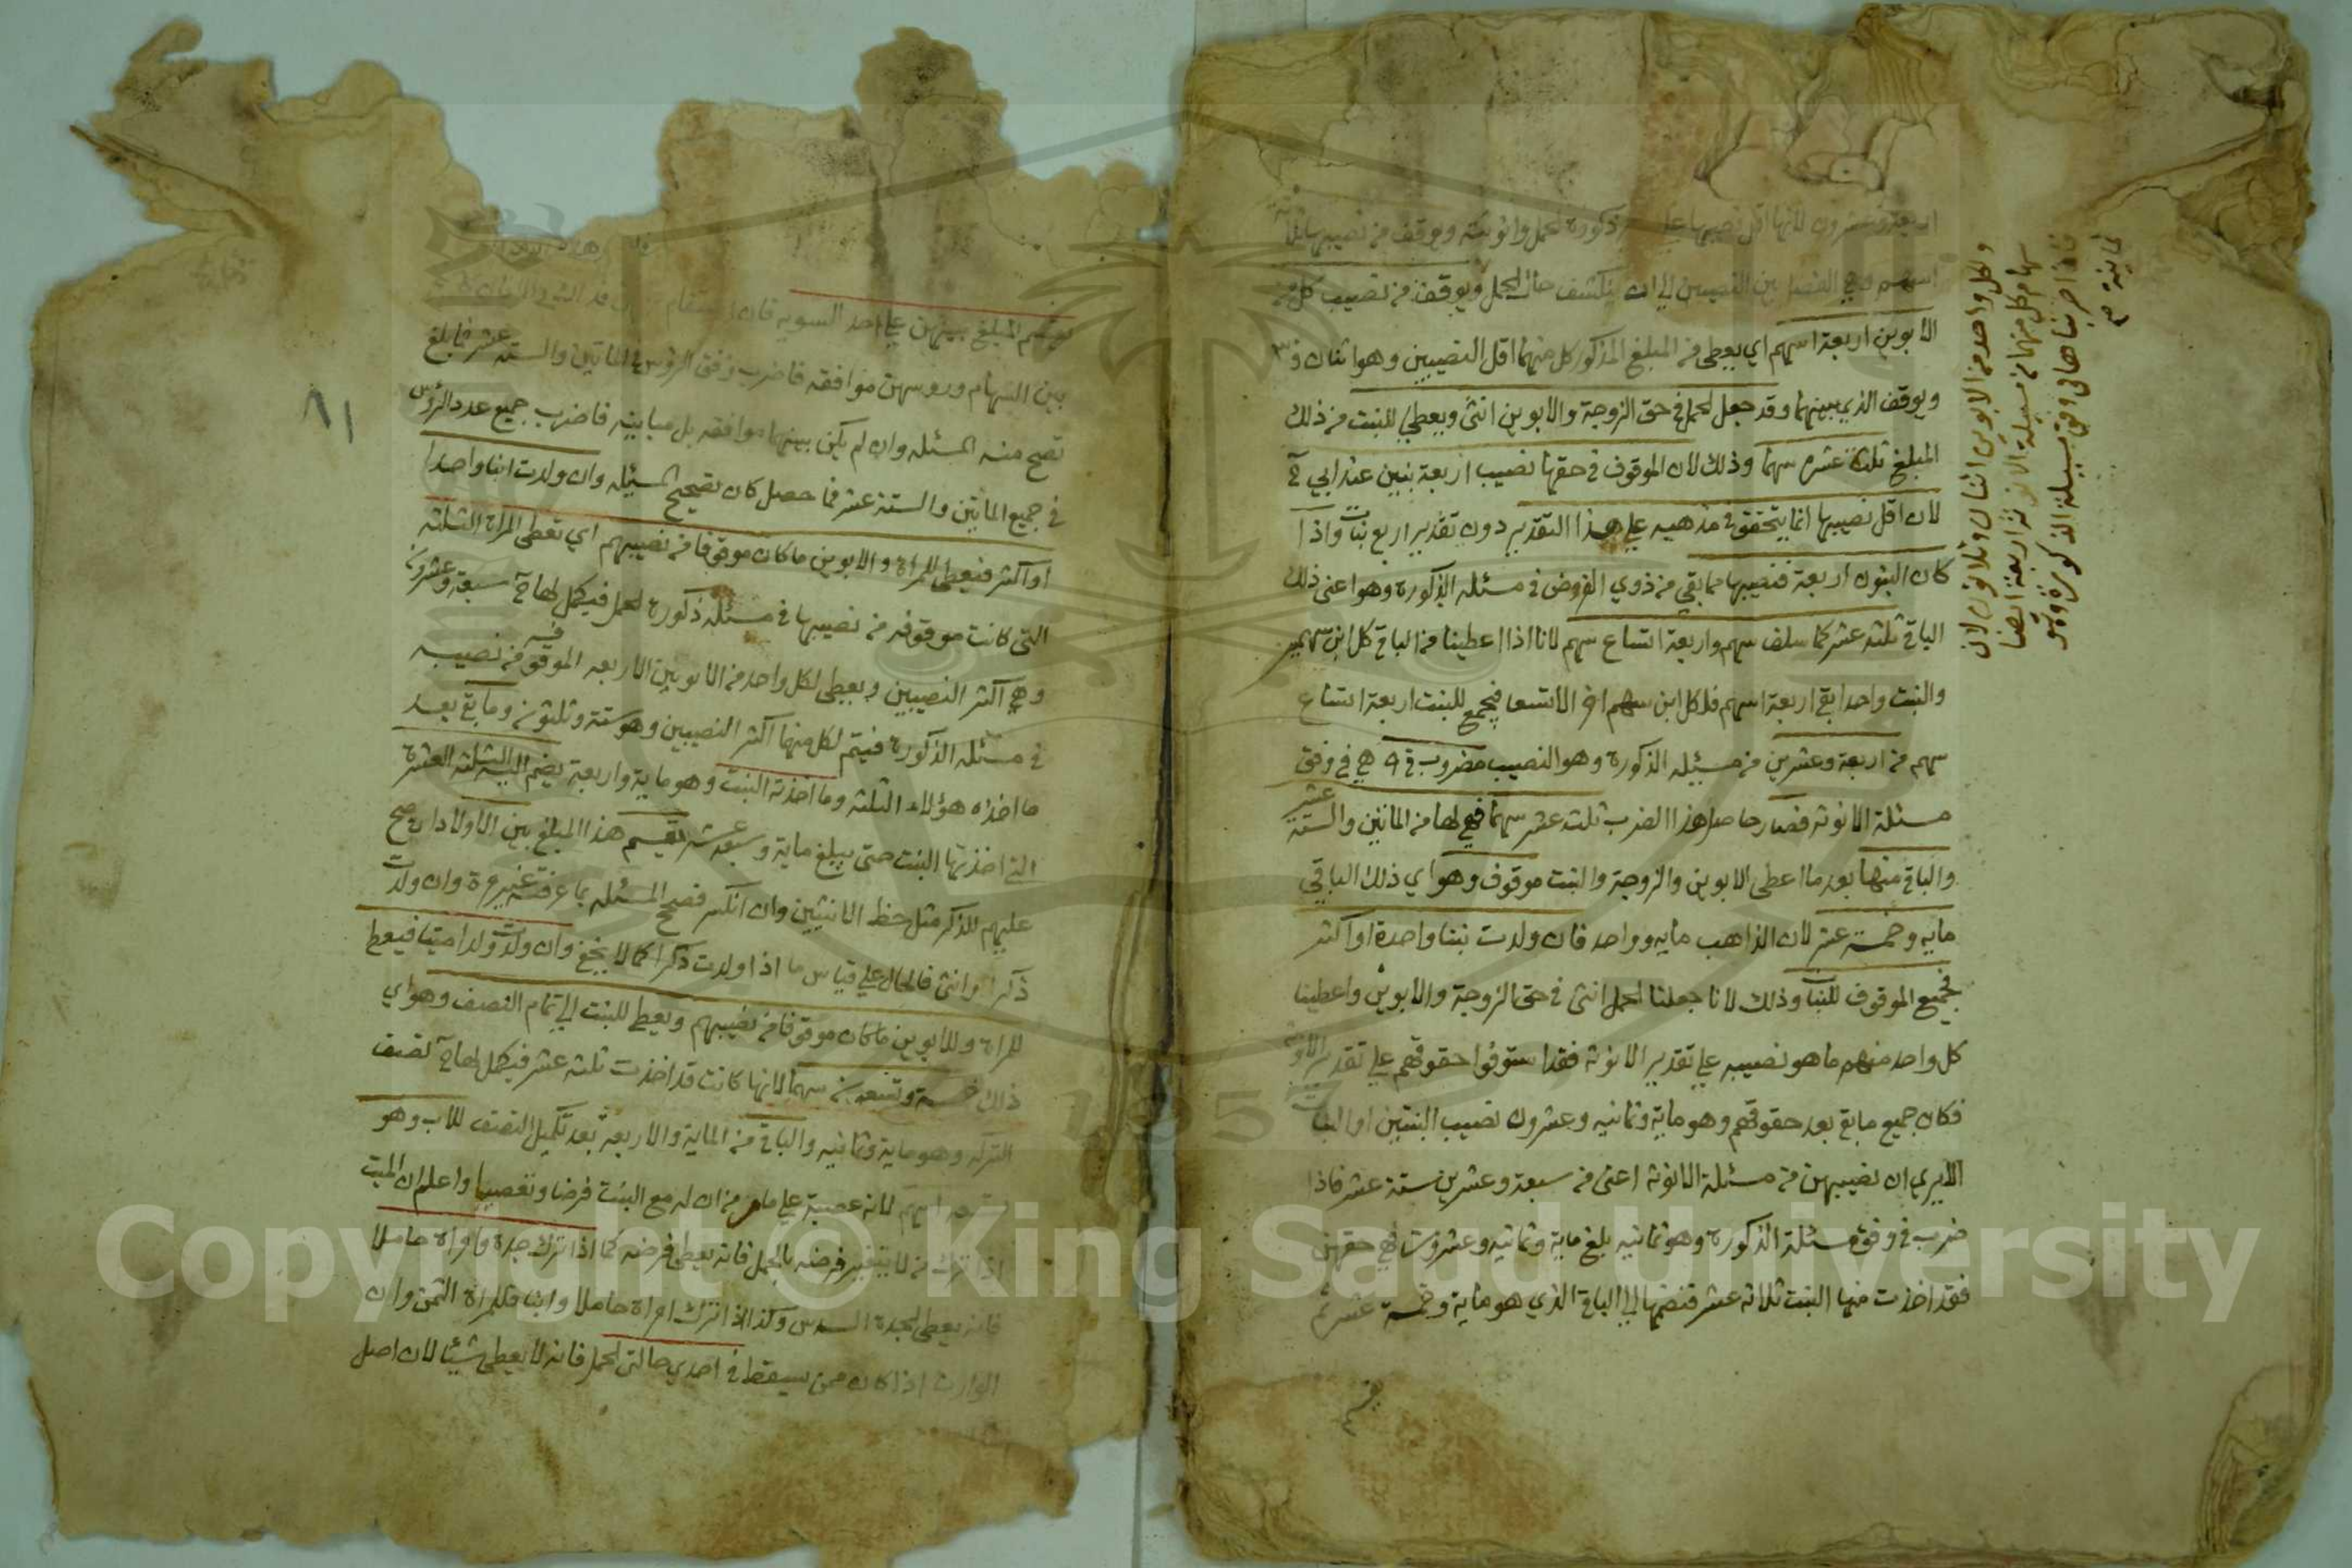 اربعة وعشرون لانها اقل نصيبها علي ذكورة الحمل وانوثته ويوقف من نصيبها ثلثة
اسهم وهي الفضل بين النصيبين الي ان ينكشف حال الحمل ويوقف من نصيب كل من
الابوين اربعة اسهم اي يعطى من المبلغ المذكور كل منهما اقل النصيبين وهو اثنان و٣
ويوقف الذي بينهما وقد جعل الحمل في حق الزوجة والابوين انثى ويعطي للبنت من ذلك
المبلغ ثلثة عشر سهما وذلك لان الموقوف في حقها نصيب اربعة بنين عند ابي ح
لان اقل نصيبها انما يتحقق في مذهبه علي هذا التقدير دون تقدير اربع بنات واذا
كان البنون اربعة فنصيبها مما بقي من ذوي الفروض في مسئلة الذكورة وهو اعنى ذلك
الباقي ثلثة عشر كما سلف سهم واربعة اتساع سهم لانا اذا اعطينا من الباقي كل ابن سهمين
والبنت واحدا بقي اربعة اسهم فلكل ابن سهم اخر الا تسعا فيجمع للبنت اربعة اتساع
سهم من اربعة وعشرين من مسئلة الذكورة وهو النصيب مضروب في ٩ هي في وفق
مسئلة الانوثة فصار حاصل هذا الضرب ثلثة عشر سهما فهي لها من المائتين والستة عشر
والباقي منها بعد ما اعطى الابوين والزوجة والبنت موقوف وهو اي ذلك الباقي
مايه وخمسة عشر لان الذاهب مايه وواحد فان ولدت بنتا واحدة او اكثر
فجميع الموقوف للبنات وذلك لانا جعلنا الحمل انثى في حق الزوجة والابوين واعطينا
كل واحد منهم ما هو نصيبه علي تقدير الانوثة فقد استوفوا حقوقهم علي تقدير الانوثة
فكان جميع ما بقي بعد حقوقهم وهو ماية وثمانيه وعشرون نصيب البنتين او البنات
الا يري ان نصيبهن من مسئلة الانوثة اعنى من سبعة وعشرين ستة عشر فاذا
ضرب في وفق مسئلة الذكورة وهو ثمانيه بلغ ماية وثمانيه وعشرون فهي حقهن
فقد اخذت منها البنت ثلاثة عشر فنضمها الي الباقي الذي هو ماية وخمسة عشر ثم
ولكل واحد من الابوين اثنان وثلاثون لان
سهام كل منهما من مسئلة الانوثة اربعة ايضا
فاذا ضربناها في وفق مسئلة الذكورة وهو
ثمانية صح
٨١
يقسم المبلغ بينهن علي احد السويه فان استقام
بين السهام وروسهن موافقه فاضرب وفق الرؤس في المائتين والستة عشر فما بلغ
تصح منه المسئله وان لم يكن بينهما موافقه بل مباينه فاضرب جميع عدد الرؤس
في جميع المائتين والستة عشر فما حصل كان تصحيح المسئله وان ولدت ابنا واحدا
او اكثر فيعطى للمراة والابوين ما كان موقوفا من نصيبهم اي تعطى المراة الثلثه
التى كانت موقوفه من نصيبها في مسئلة ذكورة الحمل فيكمل لها ح سبعة وعشرون
وهي اكثر النصيبين ويعطى لكل واحد من الابوين الاربعه الموقوفة من نصيبه
في مسئلة الذكورة فيتم لكل منهما اكثر النصيبين وهو ستة وثلثون وما بقي بعد
ما اخذه هؤلاء الثلثه وما اخذته البنت وهو ماية واربعة يضم اليه الثلثه العشرة
التي اخذتها البنت حتى يبلغ ماية وسبعة عشر يقسم هذا المبلغ بين الاولاد ان صح
عليهم للذكر مثل حظ الانثيين وان انكسر فصحح المسئله بما عرفته غير مرة وان ولدت
ذكرا وانثى فالحال علي قياس ما اذا ولدت ذكرا كما لا يخفى وان ولدت ولدا ميتا فيعطي
للمراة وللابوين ما كان موقوفا من نصيبهم ويعطي للبنت الي تمام النصف وهو اي
ذلك خمسة وتسعون سهما لانها كانت قد اخذت ثلثه عشر فيكمل لها ح نصف
التركه وهو ماية وثمانيه والباقي من الماية والاربعة بعد تكميل النصف للاب وهو
اسهم لانه عصبة علي ما مر من ان له مع البنت فرضا وتعصيبا واعلم ان الميت
اذا ترك من لا يتغير فرضه بالحمل فانه يعطى فرضه كما اذا ترك جدة وامراة حاملا
فانه يعطى الجدة السدس وكذا اذا ترك امراة حاملا وابنا فللمراة الثمن وان
الوارث اذا كان ممن يسقط في احدي حالتى الحمل فانه لا يعطى شيئا لان اصل
Copyright © King Saud University